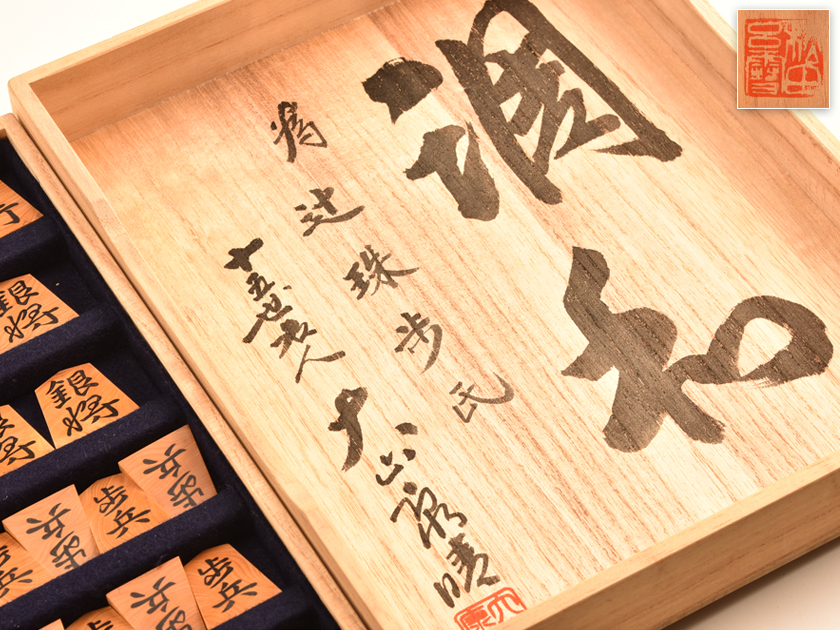 調和
為
辻珠歩氏
十五世名人
大山康晴
銀将
銀将
銀将
歩兵
歩兵
歩兵
歩兵
歩兵
歩兵
歩兵